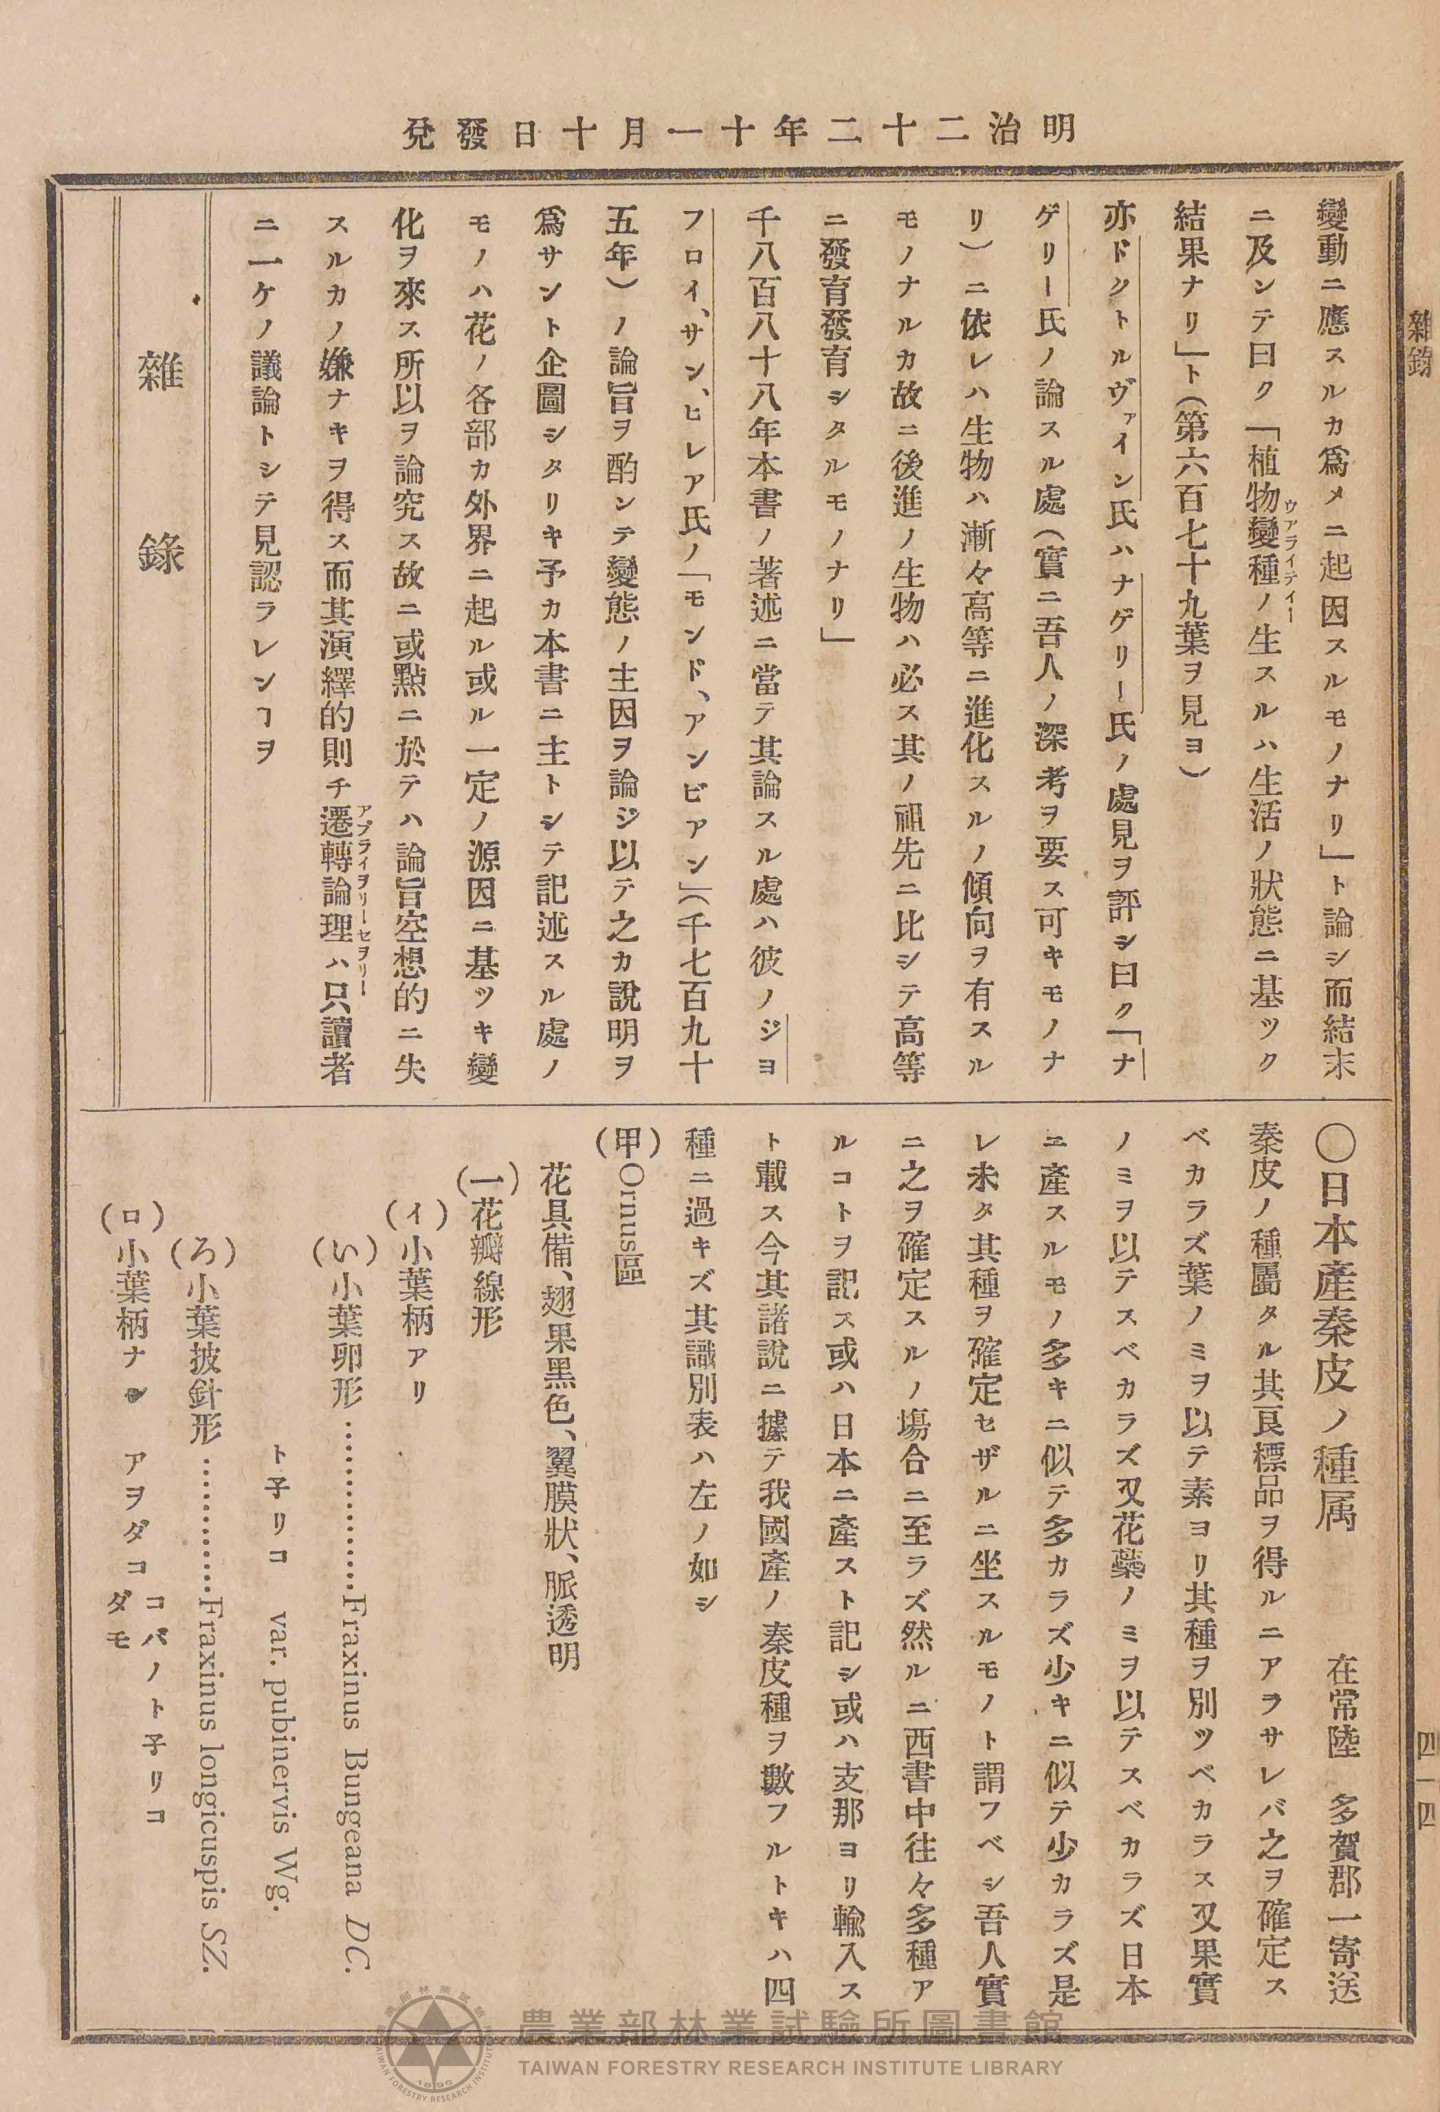 明治二十二年十一月十日發兌
雜錄
四一四
變動ニ應スルカ爲メニ起因スルモノナリ」ト論シ而結末
ニ及ンテ曰ク「植物變種ノ生スルハ生活ノ狀態ニ基ツク
ヴァライティー
結果ナリ」ト(第六百七十九葉ヲ見ヨ)
亦ドクトルヴァイン氏ハナゲリー氏ノ處見ヲ評シ曰ク「ナ
ゲリー氏ノ論スル處(實ニ吾人ノ深考ヲ要ス可キモノナ
リ)ニ依レハ生物ハ漸々高等ニ進化スルノ傾向ヲ有スル
モノナルカ故ニ後進ノ生物ハ必ス其ノ祖先ニ比シテ高等
ニ發育發育シタルモノナリ」
千八百八十八年本書ノ著述ニ當テ其論スル處ハ彼ノジヨ
フロイ、サン、ヒレア氏ノ「モンド、アンビアン」(千七百九十
五年)ノ論旨ヲ酌ンテ變態ノ主因ヲ論ジ以テ之カ說明ヲ
爲サント企圖シタリキ予カ本書ニ主トシテ記述スル處ノ
モノハ花ノ各部カ外界ニ起ル或ル一定ノ源因ニ基ツキ變
化ヲ來ス所以ヲ論究ス故ニ或點ニ於テハ論旨空想的ニ失
スルカノ嫌ナキヲ得ス而其演繹的則チ遷轉論理ハ只讀者
アプライヲリーセヲリー
ニ一ケノ議論トシテ見認ラレンヿヲ
雜錄
〇日本產秦皮ノ種属 在常陸 多賀郡一寄送
秦皮ノ種屬タル其良標品ヲ得ルニアヲサレバ之ヲ確定ス
ベカラズ葉ノミヲ以テ素ヨリ其種ヲ別ツベカラス又果實
ノミヲ以テスベカラズ又花蘂ノミヲ以テスベカラズ日本
ニ產スルモノ多キニ似テ多カラズ少キニ似テ少カラズ是
レ未タ其種ヲ確定セザルニ坐スルモノト謂フベシ吾人實
ニ之ヲ確定スルノ塲合ニ至ラズ然ルニ西書中往々多種ア
ルコトヲ記ス或ハ日本ニ產スト記シ或ハ支那ヨリ輸入ス
ト載ス今其諸說ニ據テ我國產ノ秦皮種ヲ數フルトキハ四
種ニ過キズ其識別表ハ左ノ如シ
(甲)Ornus區
花具備、翅果黑色、翼膜狀、脈透明
(一)花瓣線形
(イ)小葉柄アリ
(い)小葉卵形……………Fraxinus Bungeana DC.
ト子リコ var. pubinervis Wg.
(ろ)小葉披針形…………Fraxinus longicuspis SZ.
(ロ)小葉柄ナシ アヲダコ コバノト子リコ
ダモ
農業部林業試驗所圖書館
TAIWAN FORESTRY RESEARCH INSTITUTE LIBRARY